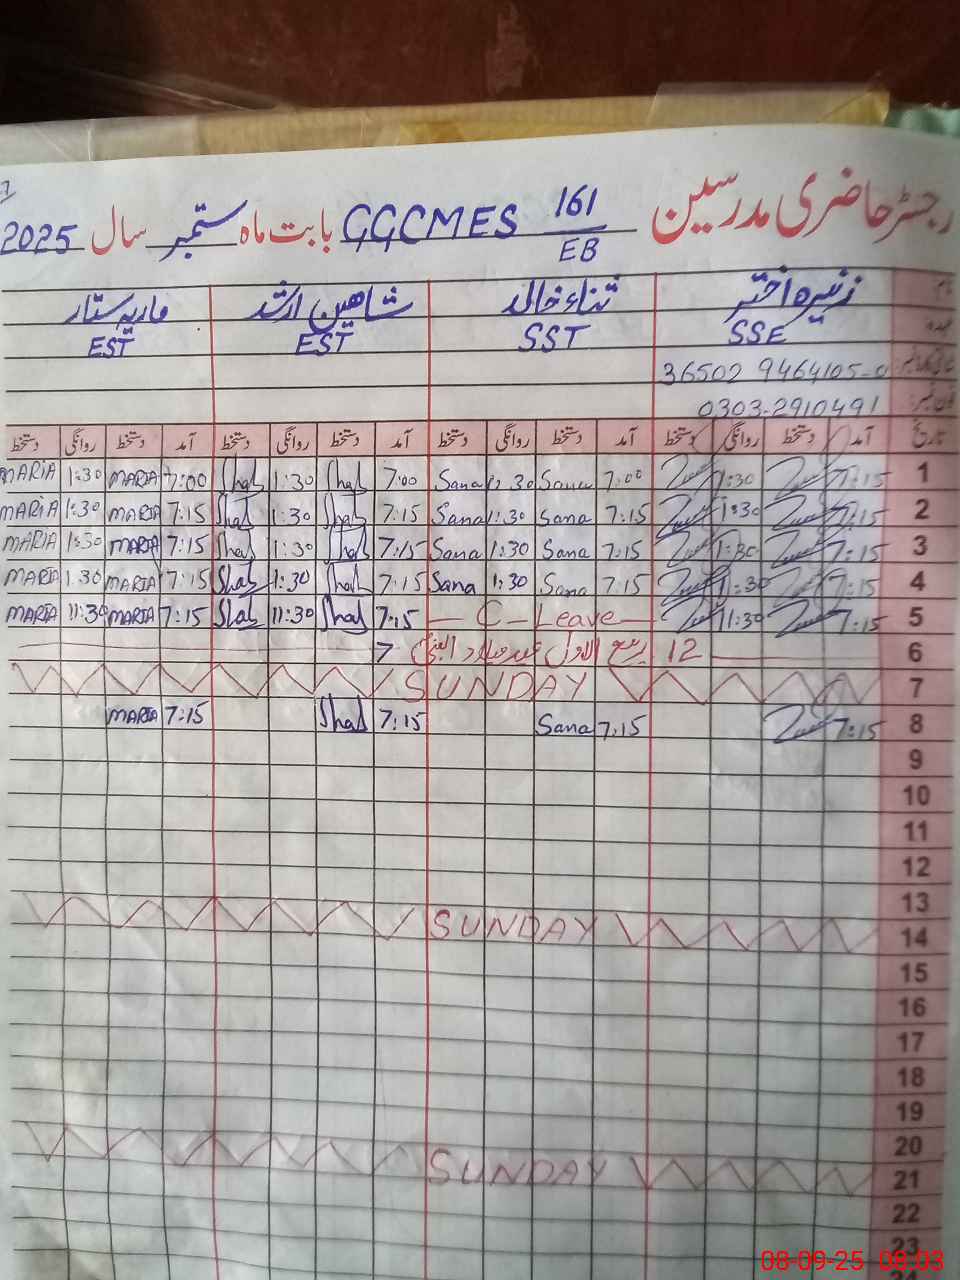 رجسٹر حاضری مدرسین GGCMES 161/EB بابت ماہ ستمبر سال 2025
زنیرہ اختر ثناء خالد شاھین ارشد ماریہ ستار
عہدہ SSE SST EST EST
36502 9464105-0
فون نمبر 0303-2910491
تاریخ آمد دستخط روانگی دستخط آمد دستخط روانگی دستخط آمد دستخط روانگی دستخط آمد دستخط روانگی دستخط
1 7:15 1:30 7:00 Sana 1:30 Sana 7:00 Shah 1:30 Shah 7:00 MARIA 1:30 MARIA
2 7:15 1:30 7:15 Sana 1:30 Sana 7:15 Shah 1:30 Shah 7:15 MARIA 1:30 MARIA
3 7:15 1:30 7:15 Sana 1:30 Sana 7:15 Shah 1:30 Shah 7:15 MARIA 1:30 MARIA
4 7:15 1:30 7:15 Sana 1:30 Sana 7:15 Shah 1:30 Shah 7:15 MARIA 1.30 MARIA
5 7:15 11:30 C-Leave 7:15 Shah 11:30 Shah 7:15 MARIA 11:30 MARIA
6 12 ربیع الاول عید میلاد النبی
7 SUNDAY
8 7:15 7:15 Sana 7:15 Shah 7:15 MARIA
9
10
11
12
13
14 SUNDAY
15
16
17
18
19
20
21 SUNDAY
22
23
08-09-25 08:03